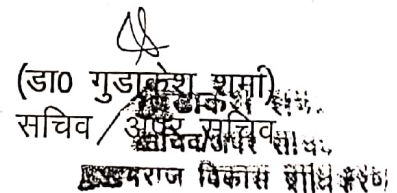 (डा0 गुडाकेश शर्मा)
सचिव / अपर सचिव
सचिव/अपर सचिव
विकास प्राधिकरण